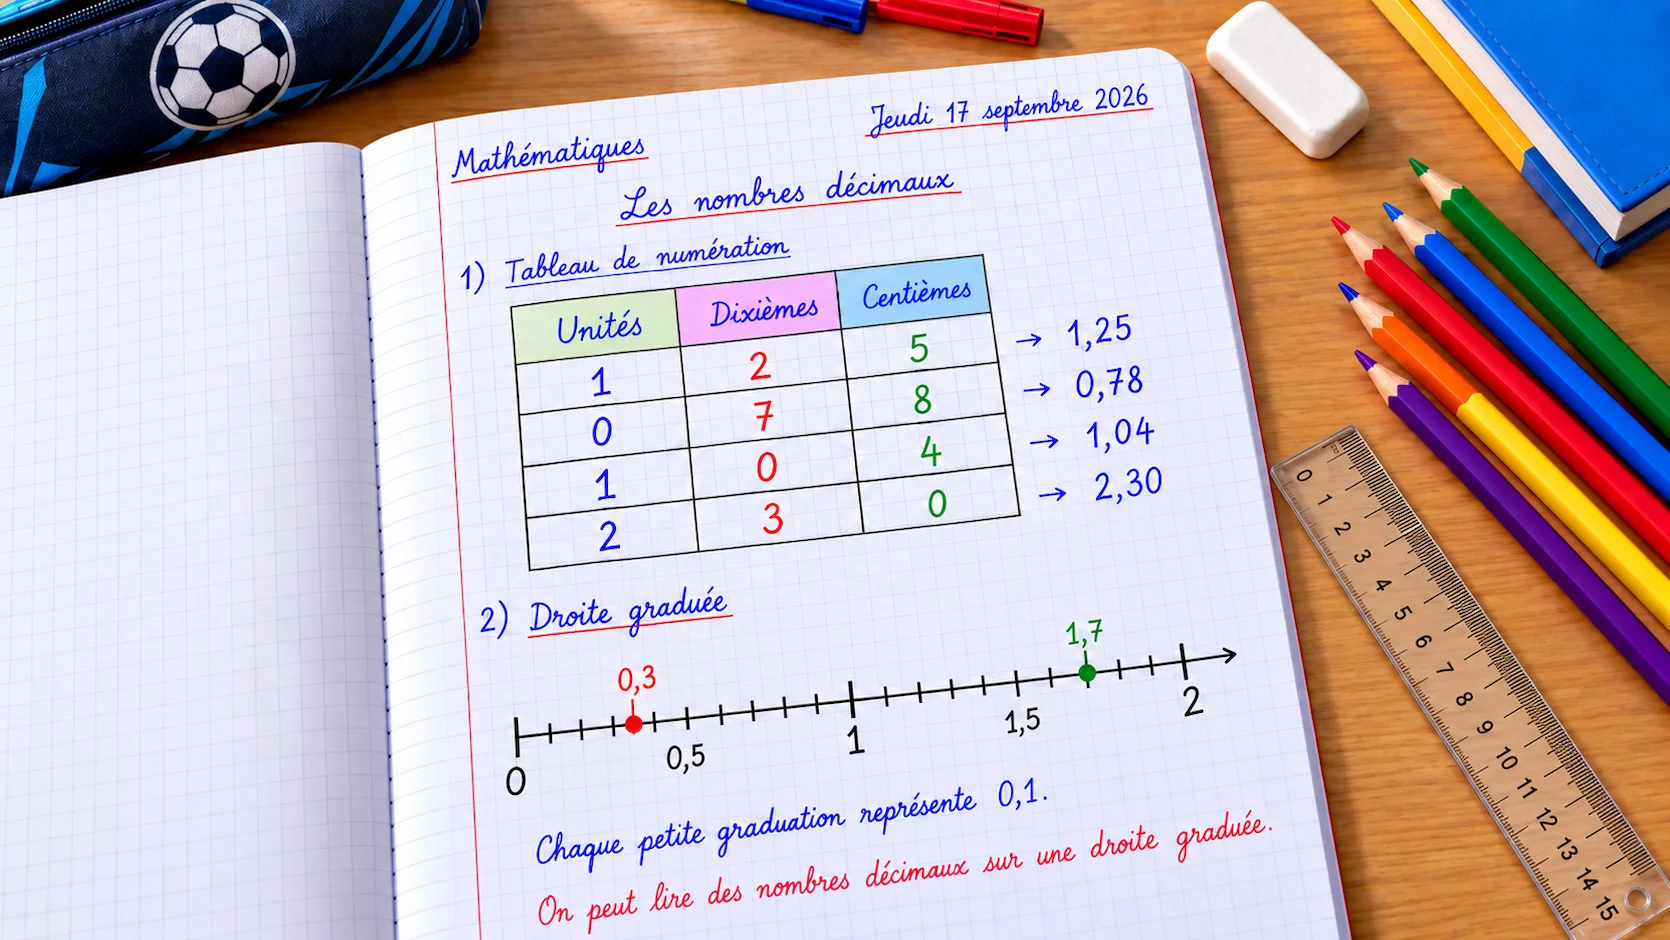 Jeudi 17 septembre 2026
Mathématiques
Les nombres décimaux
1) Tableau de numération
Unités Dixièmes Centièmes
1 2 5 → 1,25
0 7 8 → 0,78
1 0 4 → 1,04
2 3 0 → 2,30
2) Droite graduée
0,3 1,7
0 0,5 1 1,5 2
Chaque petite graduation représente 0,1.
On peut lire des nombres décimaux sur une droite graduée.
0 1 2 3 4 5 6 7 8 9 10 11 12 13 14 15